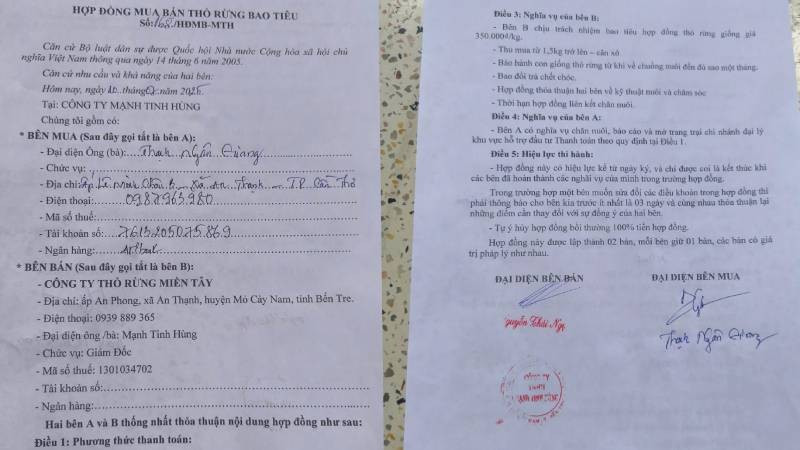 HỢP ĐỒNG MUA BÁN THỎ RỪNG BAO TIÊU
Số: 168/HĐMB-MTH
Căn cứ Bộ luật dân sự được Quốc hội Nhà nước Cộng hòa xã hội chủ
nghĩa Việt Nam thông qua ngày 14 tháng 6 năm 2005.
Căn cứ nhu cầu và khả năng của hai bên:
Hôm nay, ngày 10 tháng năm 2025
Tại: CÔNG TY MẠNH TINH HÙNG
Chúng tôi gồm có:
* BÊN MUA (Sau đây gọi tắt là bên A):
- Đại diện Ông (bà): Thạch Ngân Giang
- Chức vụ:
- Địa chỉ: ấp Lê Minh Châu B - Xã An Thạnh - TP. Cần Thơ
- Điện thoại: 0987963980
- Mã số thuế:
- Tài khoản số: 7613205075869
- Ngân hàng:
* BÊN BÁN (Sau đây gọi tắt là bên B):
- CÔNG TY THỎ RỪNG MIỀN TÂY
- Địa chỉ: ấp An Phong, xã An Thạnh, huyện Mỏ Cày Nam, tỉnh Bến Tre.
- Điện thoại: 0939 889 365
- Đại diện ông /bà: Mạnh Tinh Hùng
- Chức vụ: Giám Đốc
- Mã số thuế: 1301034702
- Tài khoản số:
- Ngân hàng:
Hai bên A và B thống nhất thỏa thuận nội dung hợp đồng như sau:
Điều 1: Phương thức thanh toán:
Điều 3: Nghĩa vụ của bên B:
- Bên B chịu trách nhiệm bao tiêu hợp đồng thỏ rừng giống giá
350.000đ/kg.
- Thu mua từ 1,5kg trở lên – cân xô
- Bảo hành con giống thỏ rừng từ khi về chuồng nuôi đến đẻ sau một tháng.
- Bao đổi trả chết chóc.
- Hợp đồng thỏa thuận hai bên về kỹ thuật nuôi và chăm sóc
- Thời hạn hợp đồng liên kết chăn nuôi.
Điều 4: Nghĩa vụ của bên A:
- Bên A có nghĩa vụ chăn nuôi, báo cáo và mở trang trại chi nhánh đại lý
khu vực hỗ trợ đầu tư Thanh toán theo quy định tại Điều 1.
Điều 5: Hiệu lực thi hành:
- Hợp đồng này có hiệu lực kể từ ngày ký, và chỉ được coi là kết thúc khi
các bên đã hoàn thành các nghĩa vụ của mình trong trường hợp đồng.
Trong trường hợp một bên muốn sửa đổi các điều khoản trong hợp đồng thì
phải thông báo cho bên kia trước ít nhất là 03 ngày và cùng nhau thỏa thuận lại
những điểm cần thay đổi với sự đồng ý của hai bên.
- Tự ý hủy hợp đồng bồi thường 100% tiền hợp đồng.
Hợp đồng này được lập thành 02 bản, mỗi bên giữ 01 bản, các bản có giá
trị pháp lý như nhau.
ĐẠI DIỆN BÊN BÁN
ĐẠI DIỆN BÊN MUA
Thạch Ngân Giang